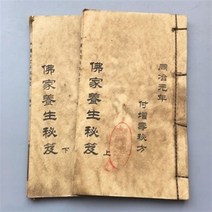 同治元年
何增壽秘方
佛家養生秘笈 上
佛家養生秘笈 下